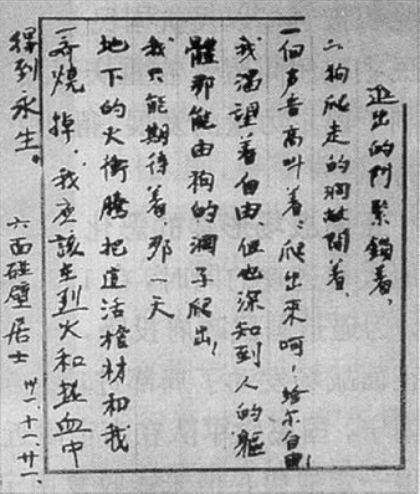 进出的門緊鎖着,
为狗爬走的洞敞開着、
一個声音高叫着:爬出來呵!給尔自由!
我渴望着自由、但也深知到人的軀
體那能由狗的洞子爬出!
我只能期待着,那一天
地下的火衝騰把這活棺材和我
一齊燒掉,我应該在烈火和热血中
得到永生。
六面碰壁居士
卅一、十一、廿一、